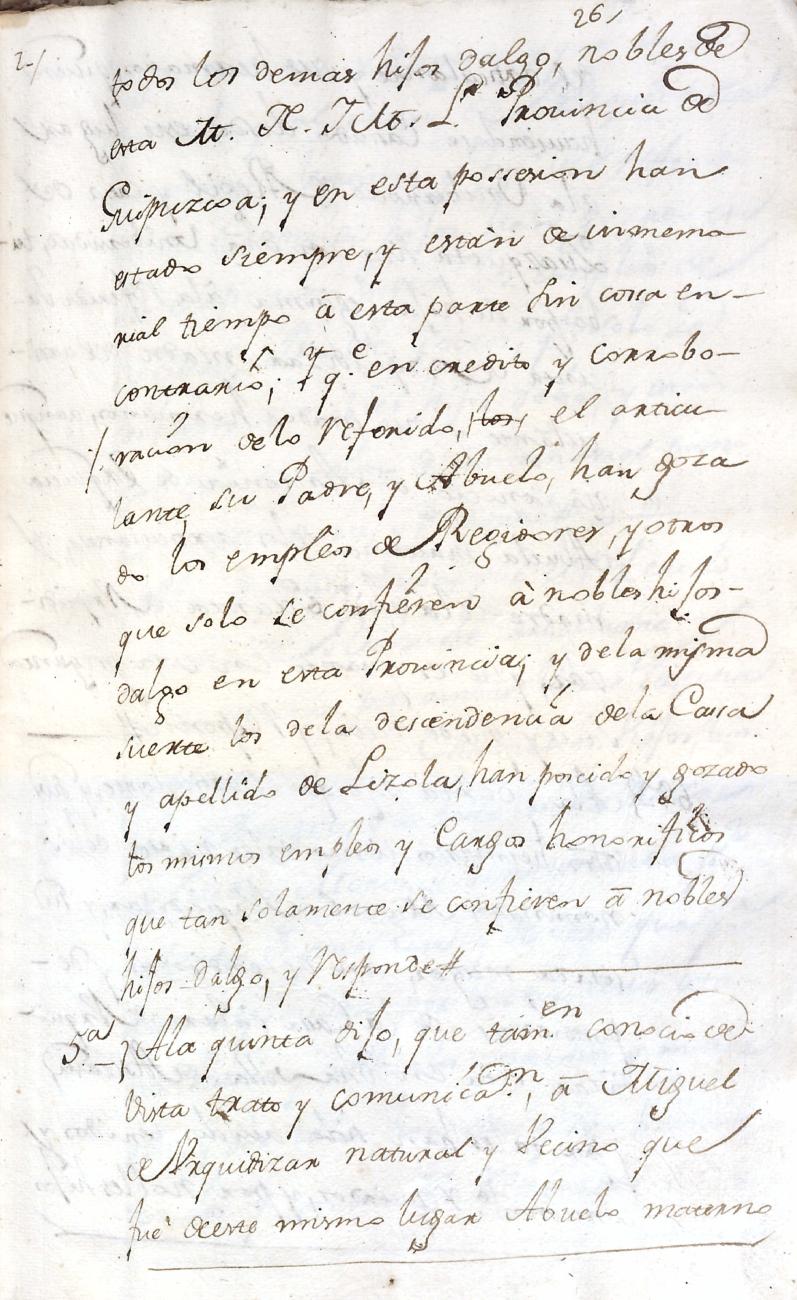 26,
2-/
todos los demas hijos dalgo, nobles de
esta M. N. y M. L. Provincia de
Guipuzcoa; y en esta possesion han
estado siempre, y están de inmemo-
rial tiempo â esta parte sin cossa en-
contrario; y q.e en credito y corrobo-
/ racion delo referido, los, el articu-
lante, su Padre, y Abuelo, han goza
do los empleos de Regidores, y otros
que solo se confieren à nobles hijos-
dalgo en esta Provincia; y dela misma
suerte los dela descendencia dela Cassa
y apellido de Lizola, han poseido y gozado
los mismos empleos y Cargos honorificos
que tan solamente se confieren â nobles
hijos-dalgo, y responde #
5a-} Ala quinta dijo, que tam.en conocio de
vista trato y comunica.on, â Miguel
de Urquidizar natural y Vecino que
fué deeste mismo lugar Abuelo materno